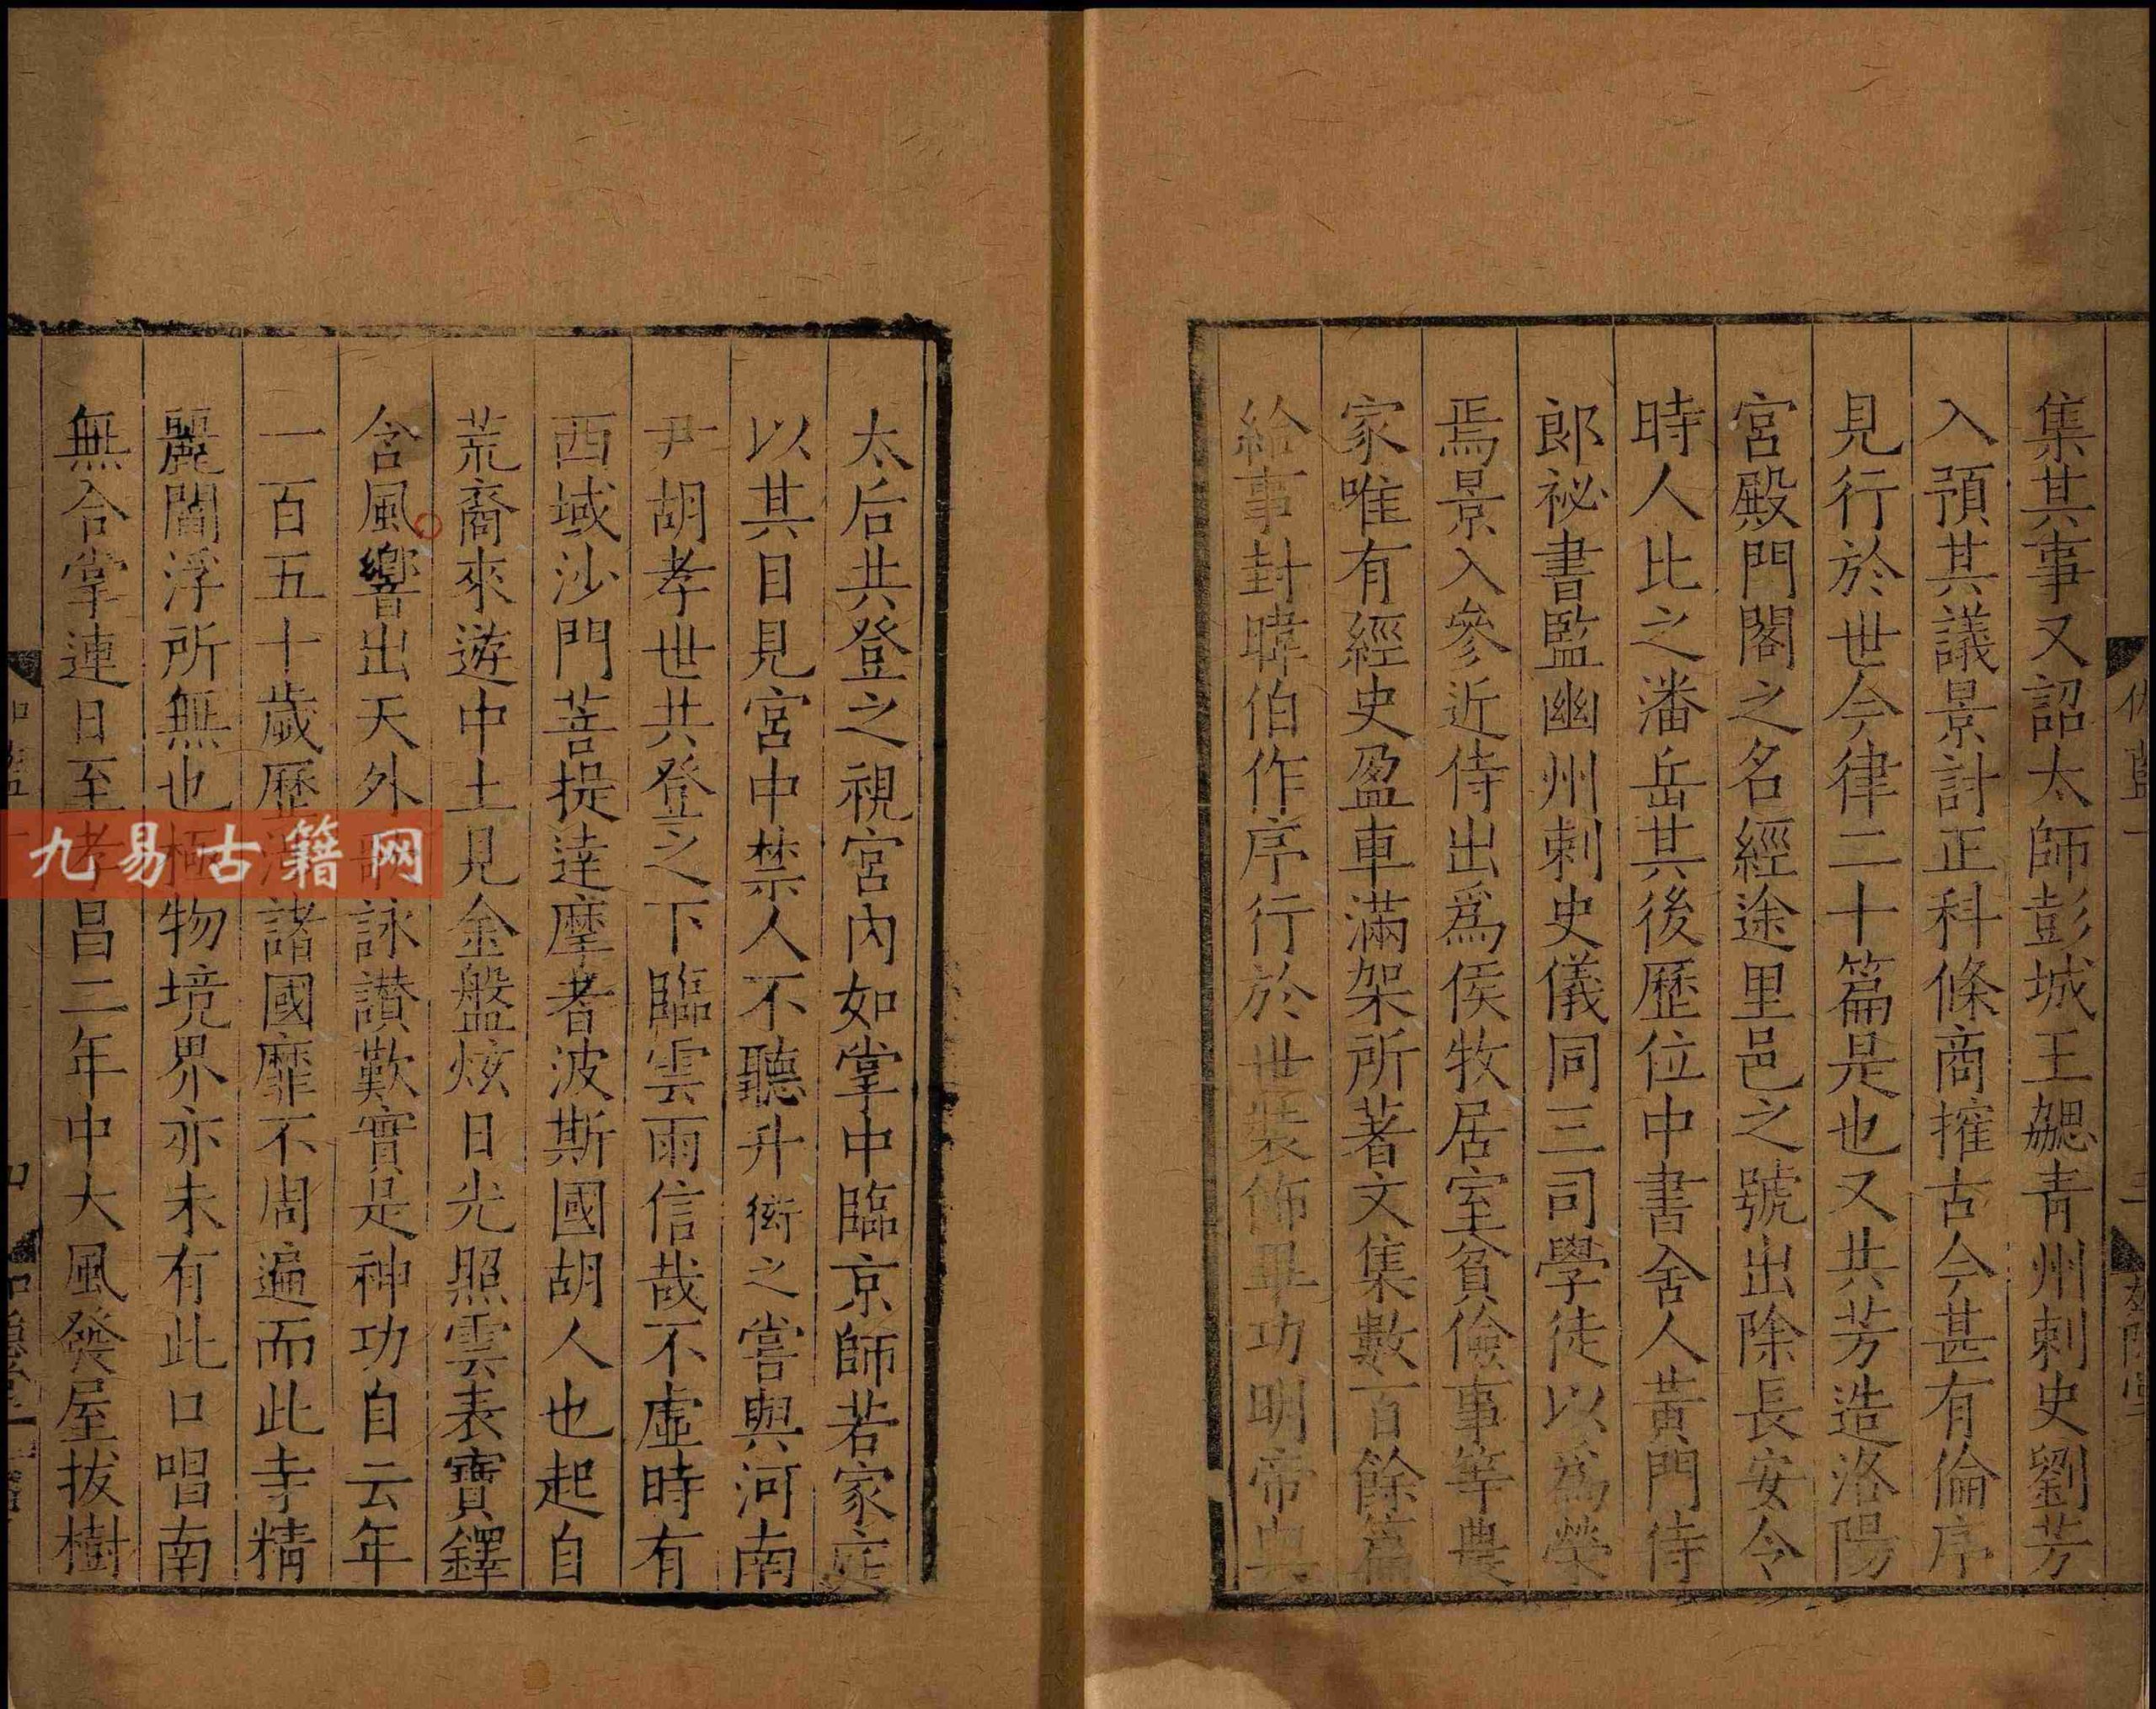 集其事又詔太師彭城王勰青州刺史劉芳
入預其議景討正科條商搉古今甚有倫序
見行於世今律二十篇是也又共芳造洛陽
宮殿門閣之名經途里邑之號出除長安令
時人比之潘岳其後歷位中書舍人黃門侍
郎祕書監幽州刺史儀同三司學徒以爲榮
焉景入參近侍出爲侯牧居室貧儉事等農
家唯有經史盈車滿架所著文集數百餘篇
給事封暐伯作序行於世裝飾畢功明帝與
太后共登之視宮內如掌中臨京師若家庭
以其目見宮中禁人不聽升衒之嘗與河南
尹胡孝世共登之下臨雲雨信哉不虛時有
西域沙門菩提達摩者波斯國胡人也起自
荒裔來遊中土見金盤炫日光照雲表寶鐸
含風響出天外歌詠讚歎實是神功自云年
一百五十歲歷涉諸國靡不周遍而此寺精
麗閻浮所無也極物境界亦未有此口唱南
無合掌連日至孝昌二年中大風發屋拔樹
九易古籍网